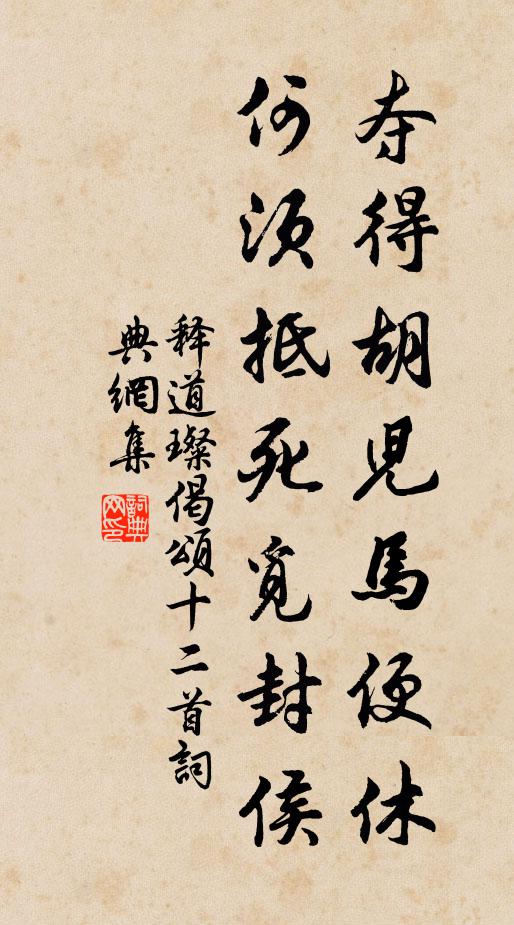 夺得胡児馬便休
何須抵死覓封侯
释道璨偈頌十二首詞
典網集
詞典网印